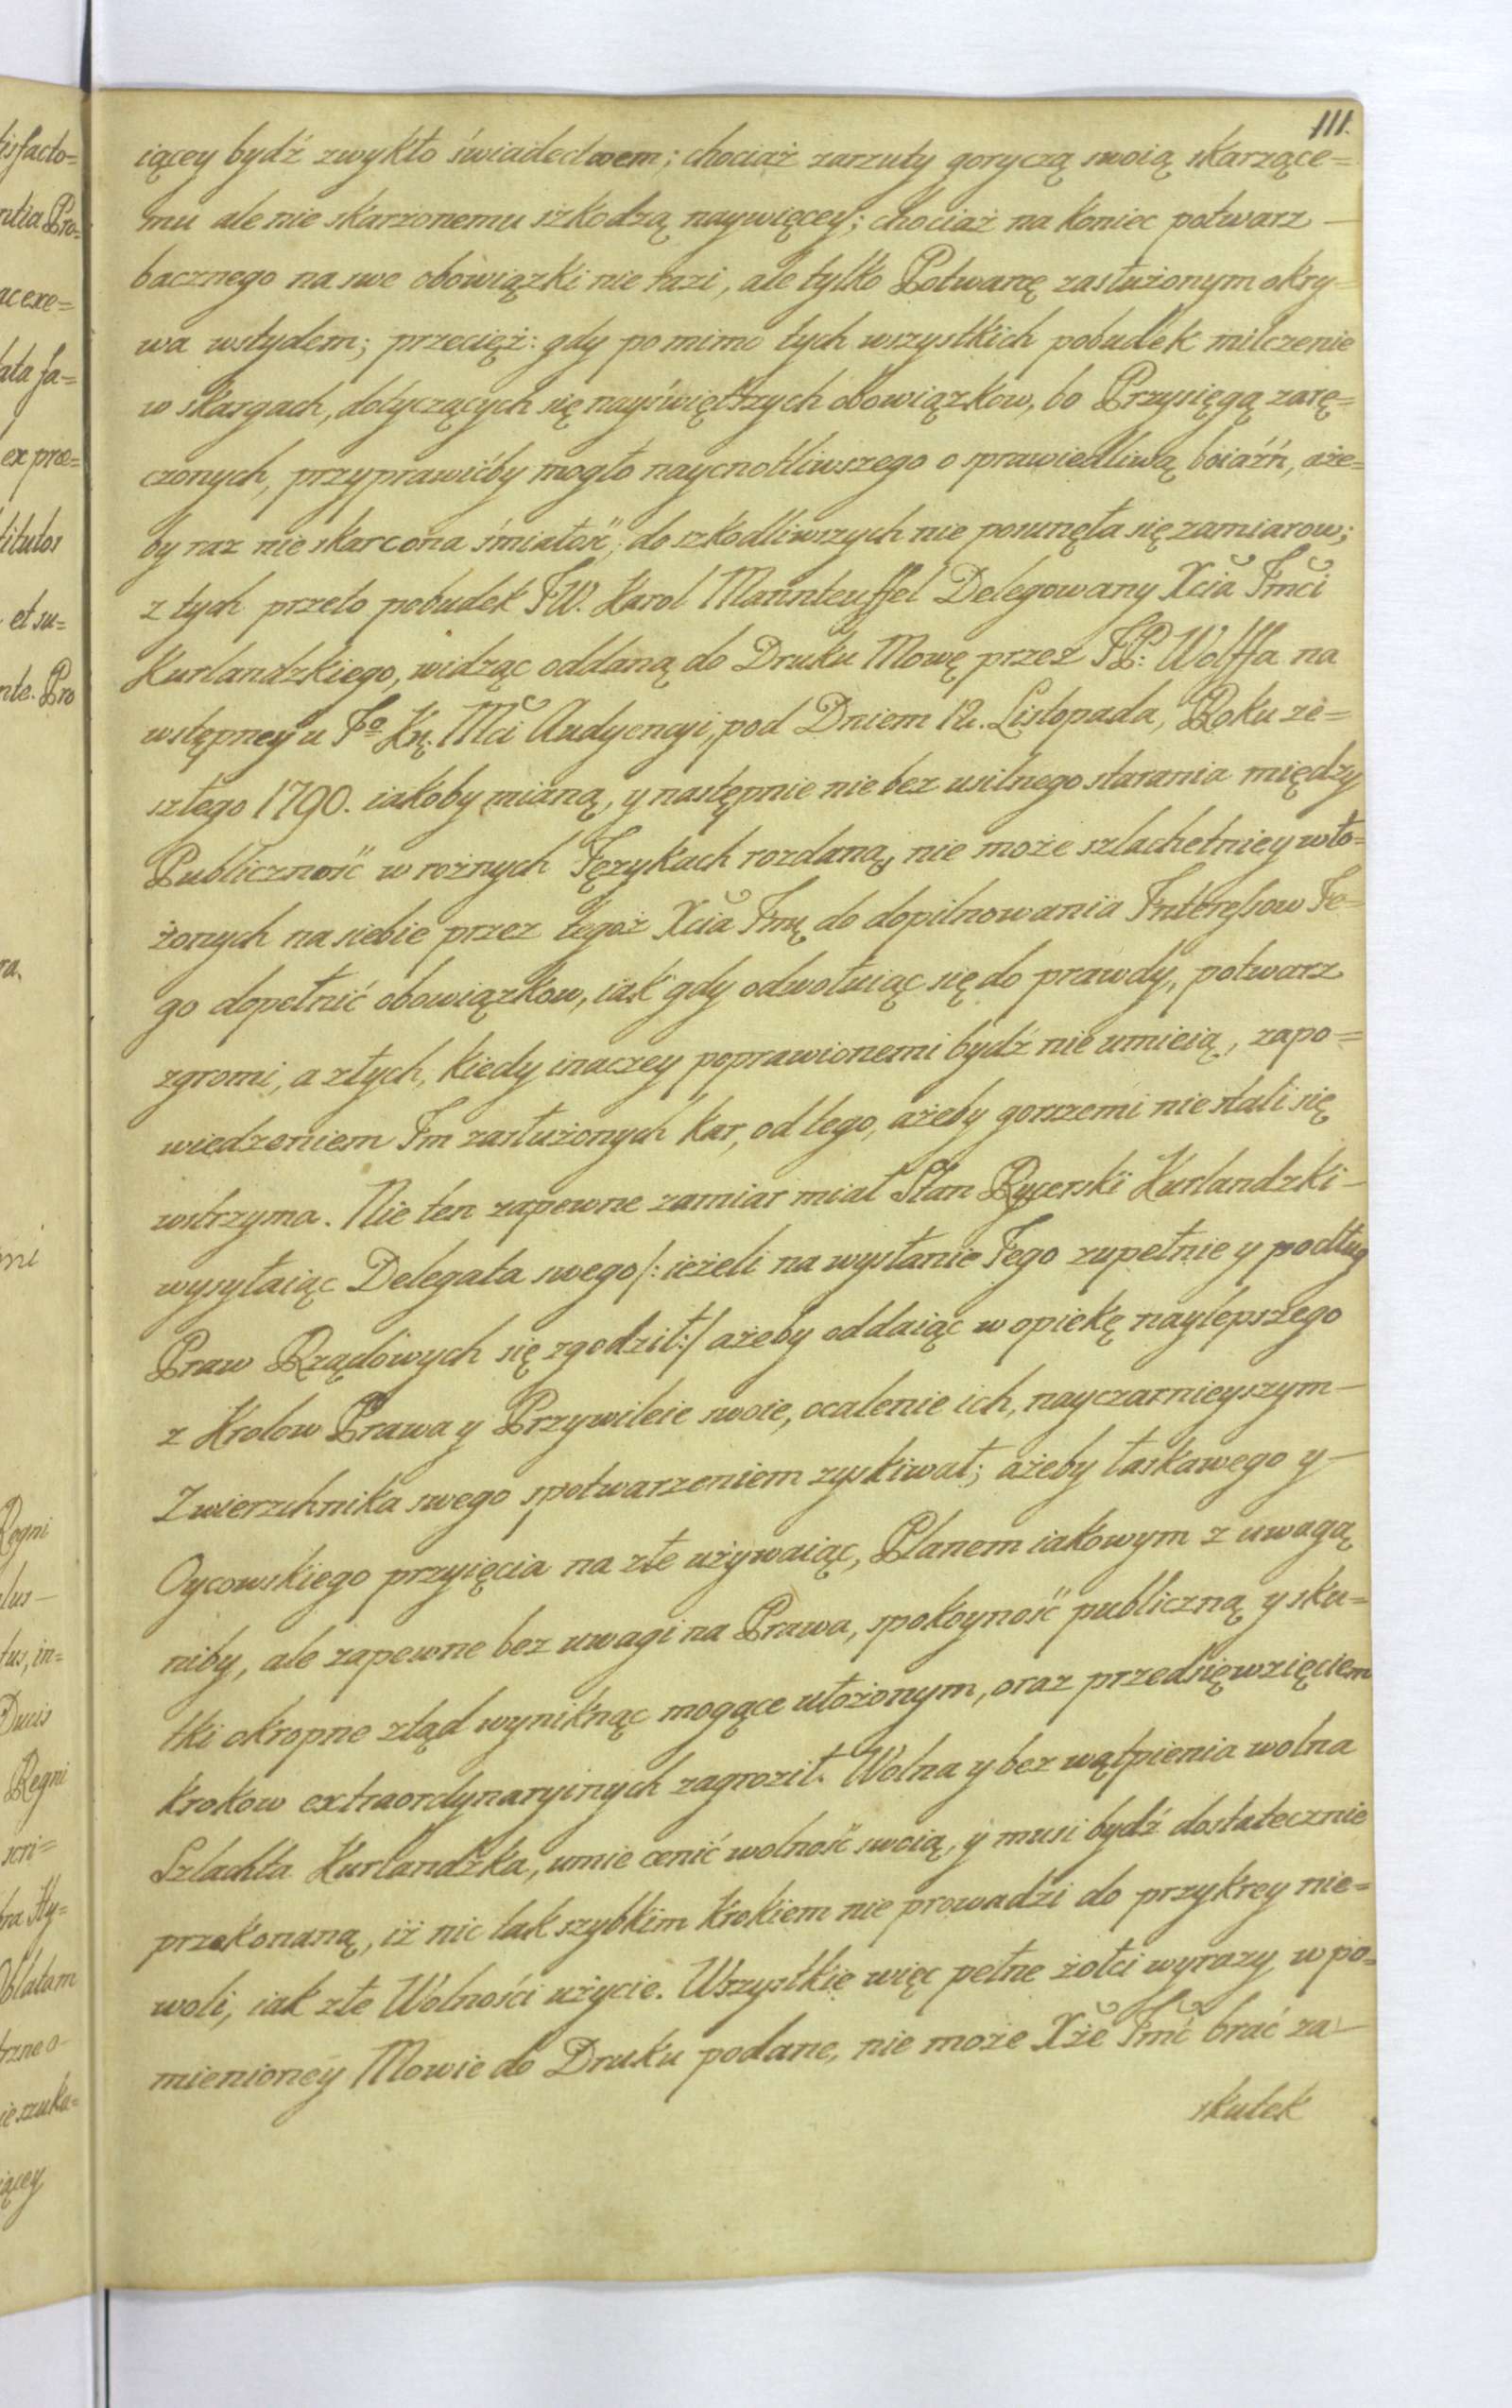 111.
iącey bydź zwykło świadectwem; chociaż zarzuty goryczą swoią skarzące=
mu ale nie skarżonemu szkodzą naywięcey; chociaż na koniec potwarz —
bacznego na swe obowiązki nie razi, ale tylko Potwarcę zasłużonym okry=
wa wstydem; przecięż: gdy pomimo tych wszystkich pobudek milczenie
w skargach, dotyczących się nayświętszych obowiązkow, bo Przysięgą zarę=
czonych, przyprawićby mogło naycnotliwszego o sprawiedliwą boiaźń, aże=
by raz nie skarcona śmiałość, do szkodliwszych nie posunęła się zamiarow;
z tych przeto pobudek JW. Karol Mannteuffel Delegowany Xcia Jmci
Kurlandzkiego, widząc oddaną do Druku Mowę przez JP: Wolffa na
wstępney u Jº Kr. Mci Audyencyi, pod Dniem 12. Listopada, Roku ze=
szłego 1790. iakoby mianą, y następnie nie bez usilnego starania między
Publiczność w rożnych Językach rozdaną, nie może szlachetniey wło=
żonych na siebie przez tegoż Xcia Jmę do dopilnowania Interessow Je=
go dopełnić obowiązkow, iak gdy odwołuiąc się do prawdy, potwarz
zgromi, a złych, kiedy inaczey poprawionemi bydź nie umieią, zapo=
wiedzeniem Im zasłużonych kar, od tego, ażeby gorszemi nie stali się
wstrzyma. Nie ten zapewne zamiar miał Stan Rycerski Kurlandzki —
wysyłaiąc Delegata swego /: ieżeli na wysłanie Jego zupełnie y podług
Praw Rządowych się zgodził :/ ażeby oddaiąc w opiekę naylepszego
z Krolow Prawa y Przywileie swoie, ocalenie ich, nayczarnieyszym —
Zwierzchnika swego spotwarzeniem zyskiwał; ażeby łaskawego y —
Oycowskiego przyięcia na złe używaiąc, Planem iakowym z uwagą
niby, ale zapewne bez uwagi na Prawa, spokoyność publiczną y sku=
tki okropne ztąd wyniknąc mogące ułożonym, oraz przedsięwzięciem
krokow extraordynaryinych zagroził. Wolna y bez wątpienia wolna
Szlachta Kurlandzka, umie cenić wolność swoią, y musi bydź dostatecznie
przekonaną, iż nic tak szybkim krokiem nie prowadzi do przykrey nie=
woli, iak złe Wolności użycie. Wszystkie więc pełne żołci wyrazy, w po=
mienioney Mowie do Druku podane, nie może Xże Jmć brać za —
skutek
isfacto=
ntia Pro=
ac exe=
lata fa=
ex præ=
titulos
et su=
nte. Pro
ra.
Regni
lus —
tus, in=
Ducis
Regni
scri=
bra Hy=
Oblatam
ie szuka=
iącey